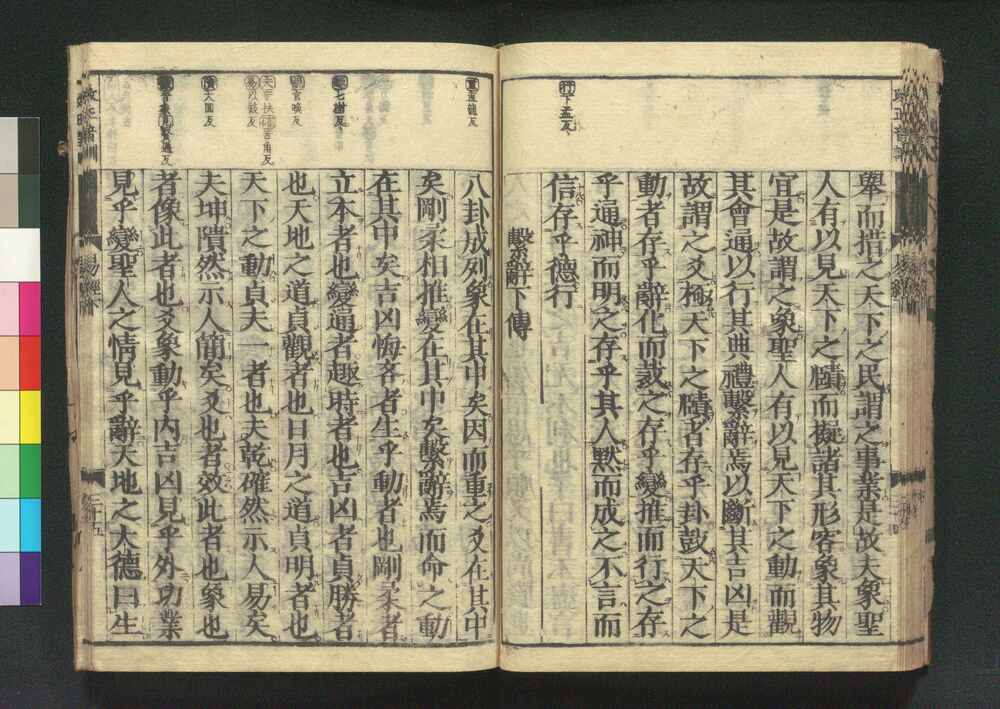 行下孟反
擧而措之天下之民謂之事業是故夫象聖
人有以見天下之賾而擬諸其形容象其物
宜是故謂之象聖人有以見天下之動而觀
其會通以行其典禮繫辭焉以斷其吉凶是
故謂之爻極天下之賾者存乎卦鼓天下之
動者存乎辭化而裁之存乎變推而行之存
乎通神而明之存乎其人黙而成之不言而
信存乎德行
繫辭下傳
重直龍反
八卦成列象在其中矣因而重之爻在其中
矣剛柔相推變在其中矣繫辭焉而命之動
在其中矣吉凶悔吝者生乎動者也剛柔者
立本者也變通者趣時者也吉凶者貞勝者
也天地之道貞觀者也日月之道貞明者也
天下之動貞夫一者也夫乾確然示人易矣
夫坤隤然示人簡矣爻也者效此者也象也
者像此者也爻象動乎内吉凶見乎外功業
見乎變聖人之情見乎辭天地之大德曰生
七樹反
官喚反
夫音扶確苦角反
易以豉反
隤大回反
易經
二十五